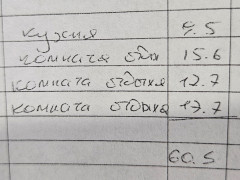 кухня 9.5
комната 15.6
комната отдыха 17.7
комната отдыха 17.7
60.5